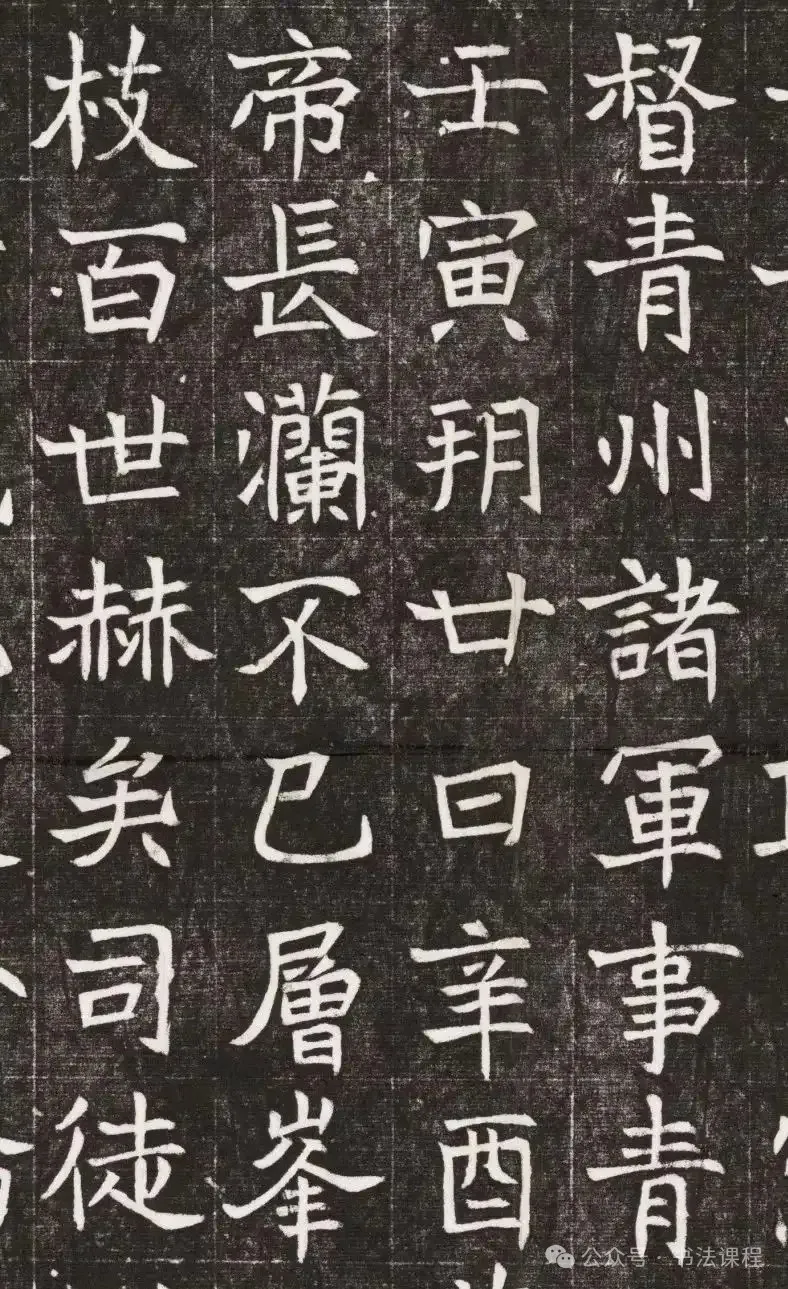 督青州諸軍事青
壬寅朔廿日辛酉
帝長瀾不已層峯
枝百世赫矣司徒
公众号·书法课程